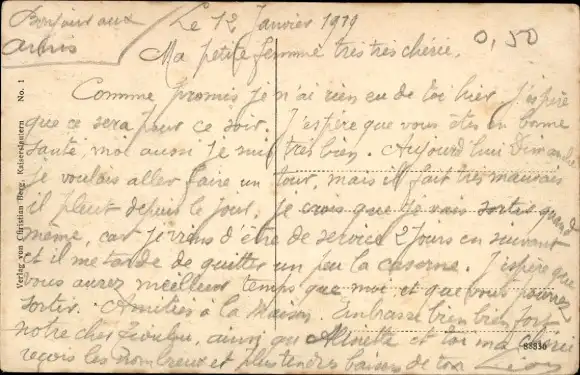 Bonjour aux
amis
Le 12 Janvier 1919
0,50
Ma petite femme très très chérie.
Comme promis je n'ai rien eu de toi hier. J'espère
que ce sera pour ce soir. J'espère que vous êtes en bonne
santé, moi aussi je suis très bien. Aujourd'hui Dimanche
je voulais aller faire un tour, mais il fait très mauvais
il pleut depuis le jour. Je crois que je vais sortir quand
même, car je viens d'être de service 2 jours en suivant
et il me tarde de quitter un peu la caserne. J'espère que
vous aurez meilleur temps que moi et que vous pourrez
sortir. Amitiés à la Maison. Embrasse très bien fort
notre cher, ainsi qu' et toi ma chérie
reçois les nombreux et plus tendres baisers de ton Léon
Verlag von Christian Berg, Kaiserslautern No. 1
88836